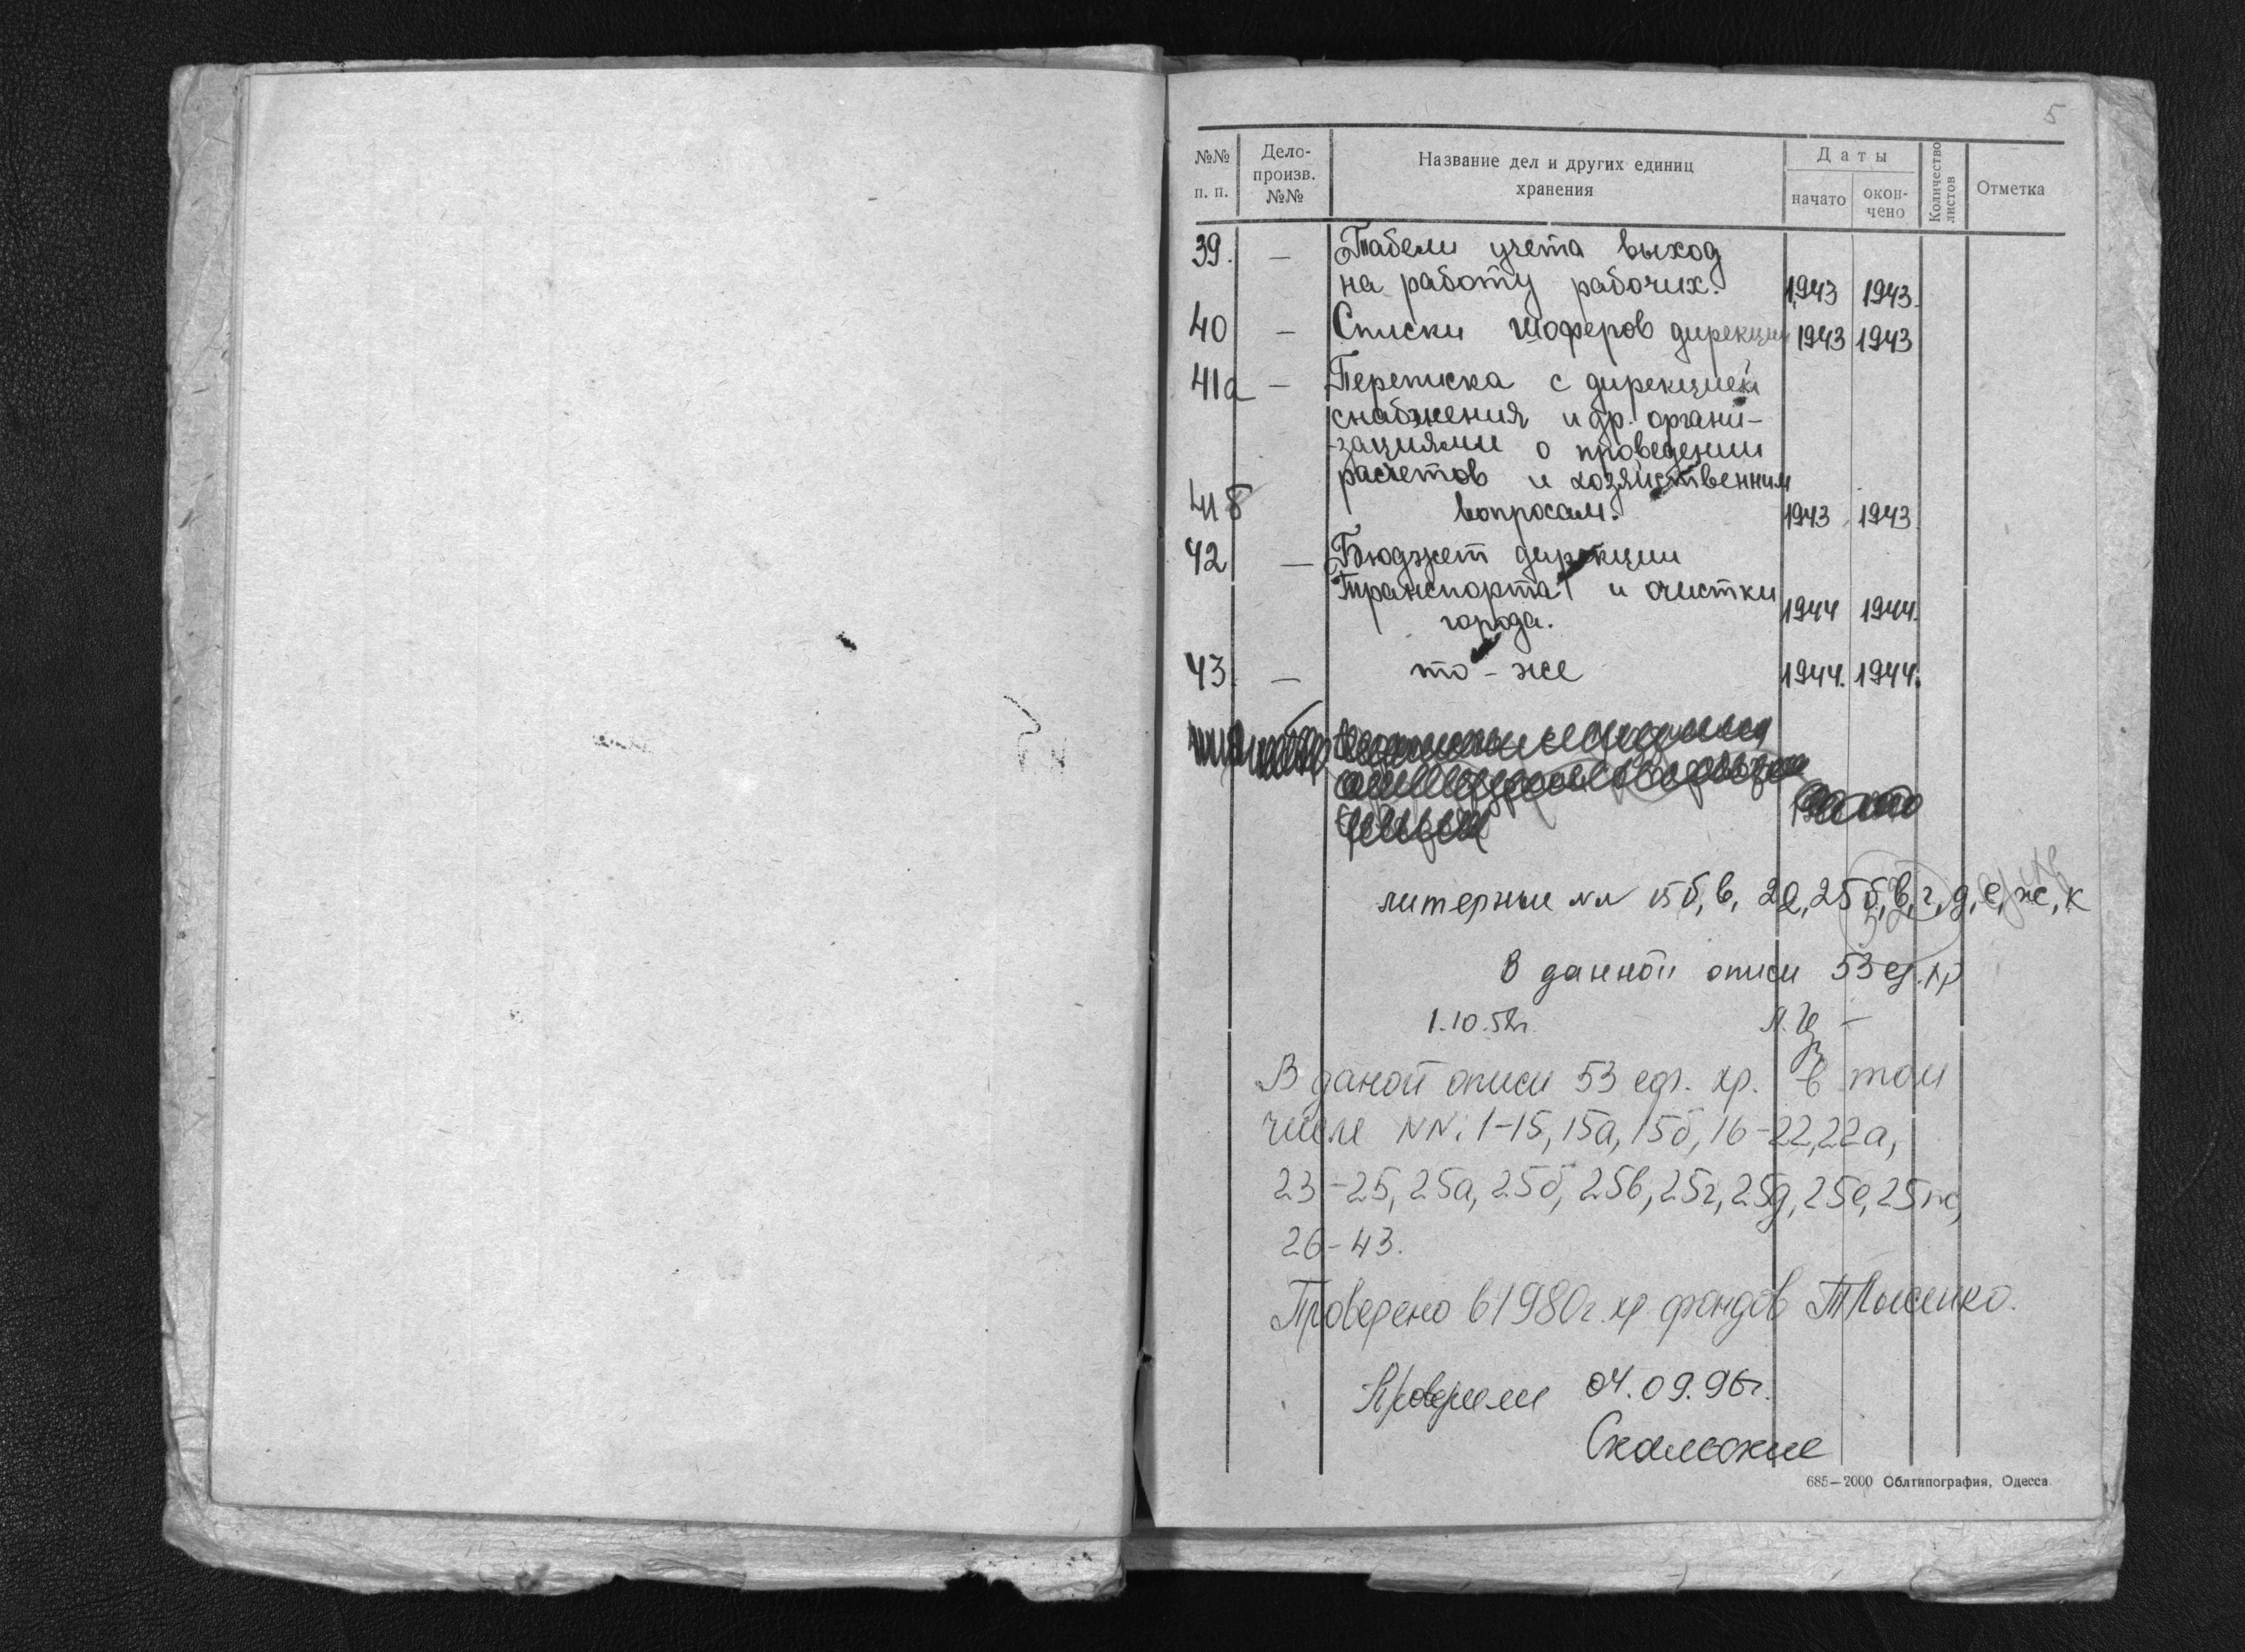 5
№№ п. п.
Дело-произв. №№
Название дел и других единиц хранения
Даты
начато
окон-чено
Количество листов
Отметка
39. — Табели учета выход
на работу рабочих. 1943 1943.
40 — Списки шоферов дирекции 1943 1943
41а — Переписка с дирекцией
снабжения и др. органи-
-зациями о проведении
расчетов и хозяйственним
41б вопросам. 1943 1943
42 — Бюджет дирекции
Транспорта и очистки
города. 1944 1944.
43. — то-же 1944. 1944.
литерные NN 15б, в, 22, 25б, в, г, д, е, ж, к
В данной описи 53 ед. хр
1.10.52г.
В даной описи 53 ед. хр. в том
числе NN: 1-15, 15а, 15б, 16-22, 22а,
23-25, 25а, 25б, 25в, 25г, 25д, 25е, 25ж,
26-43.
Проверено в 1980г. хр фондов
Проверили 04.09.96г.
685—2000 Облтипография, Одесса